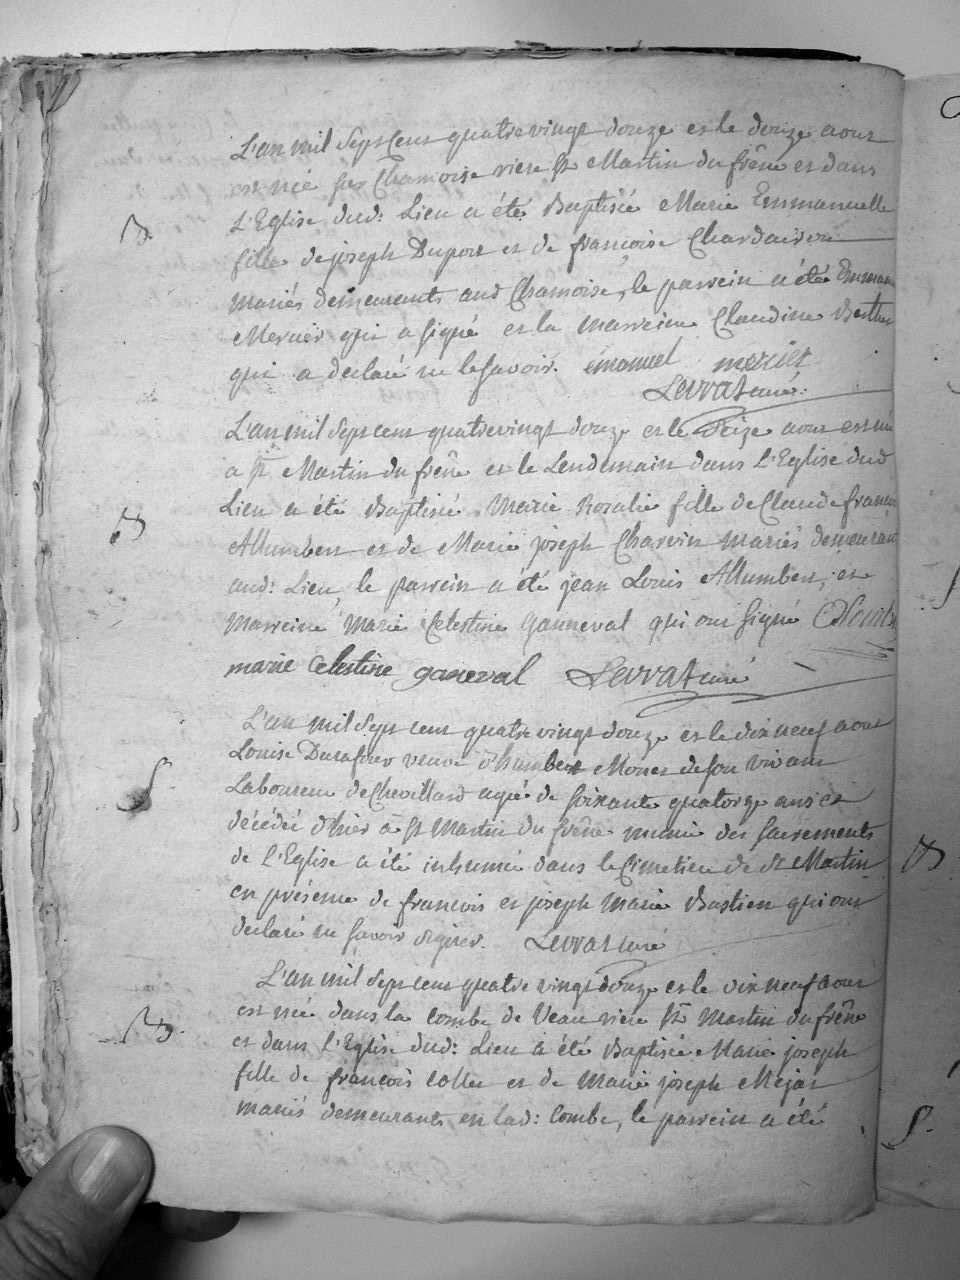 L'an mil Sept Cent quatre vingt douze et le douze aout
est née sur Chamoise riere st Martin du frêne et dans
L'Eglise dud: Lieu a été Baptisée Marie Emmanuelle
fille de joseph Duport et de francoise Chardairon
mariés demeurants aud Chamoise, le parrein a été Emman
Mercier qui a signé et la marreine Claudine Berthet
qui a declaré ne le savoir. emanuel mercier
Levrat curé.
L'an mil Sept cent quatre vingt douze et le Seize aout est née
a st Martin du frêne et le Lendemain dans L'Eglise dud
Lieu a été Baptisée Marie Rosalie fille de Claude francois
Allumbert et de Marie joseph Charvin mariés demeurant
aud: Lieu, le parrein a été jean Louis Allumbert, et
Marreine Marie Celestine Ganneval qui ont signé
marie Celestine ganeval Levrat curé
L'an mil Sept cent quatre vingt douze et le dix neuf aout
Louise veuve d'humbert Monet de son vivant
Laboureur de Chevillard agée de soixante quatorze ans et
décédée d'hier à st Martin du frêne munie des sacrements
de L'Eglise a été inhumée dans le Cimetiere de st Martin
en présence de francois et joseph Marie Bastien qui ont
declaré ne savoir signer. Levrat curé
L'an mil Sept cent quatre vingt douze et le dix neuf aout
est née dans la Combe de Veau riere st Martin du frêne
et dans L'Eglise dud: Lieu a été Baptisée Marie joseph
fille de francois collet et de Marie joseph Mejat
mariés demeurants en lad: Combe, le parrein a été